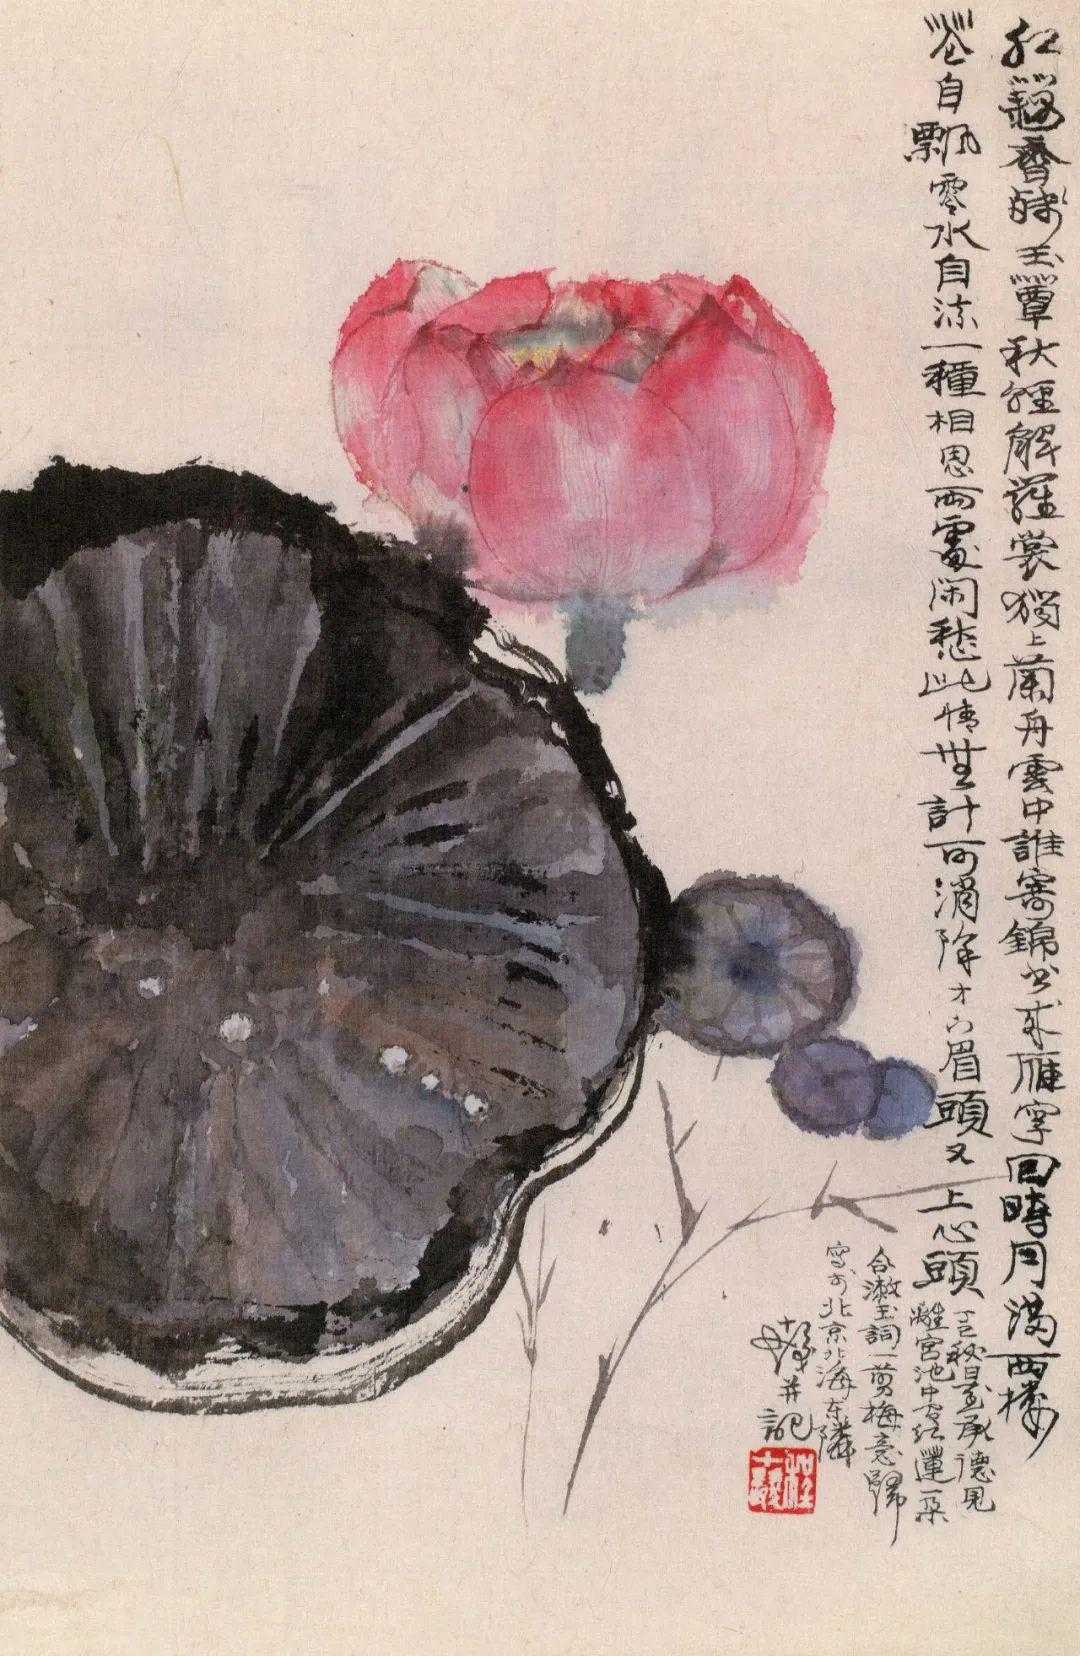 红藕香殘玉簟秋輕解羅裳獨上蘭舟雲中誰寄錦书來雁字回時月满西楼
花自飄零水自流一種相思两處闲愁此情無計可消除才下眉頭又上心頭
丁巳秋日至承德見
離宮池中有红蓮一朵
合漱玉詞一剪梅意歸
寫於北京北海东隣
十髮并記
程十髮